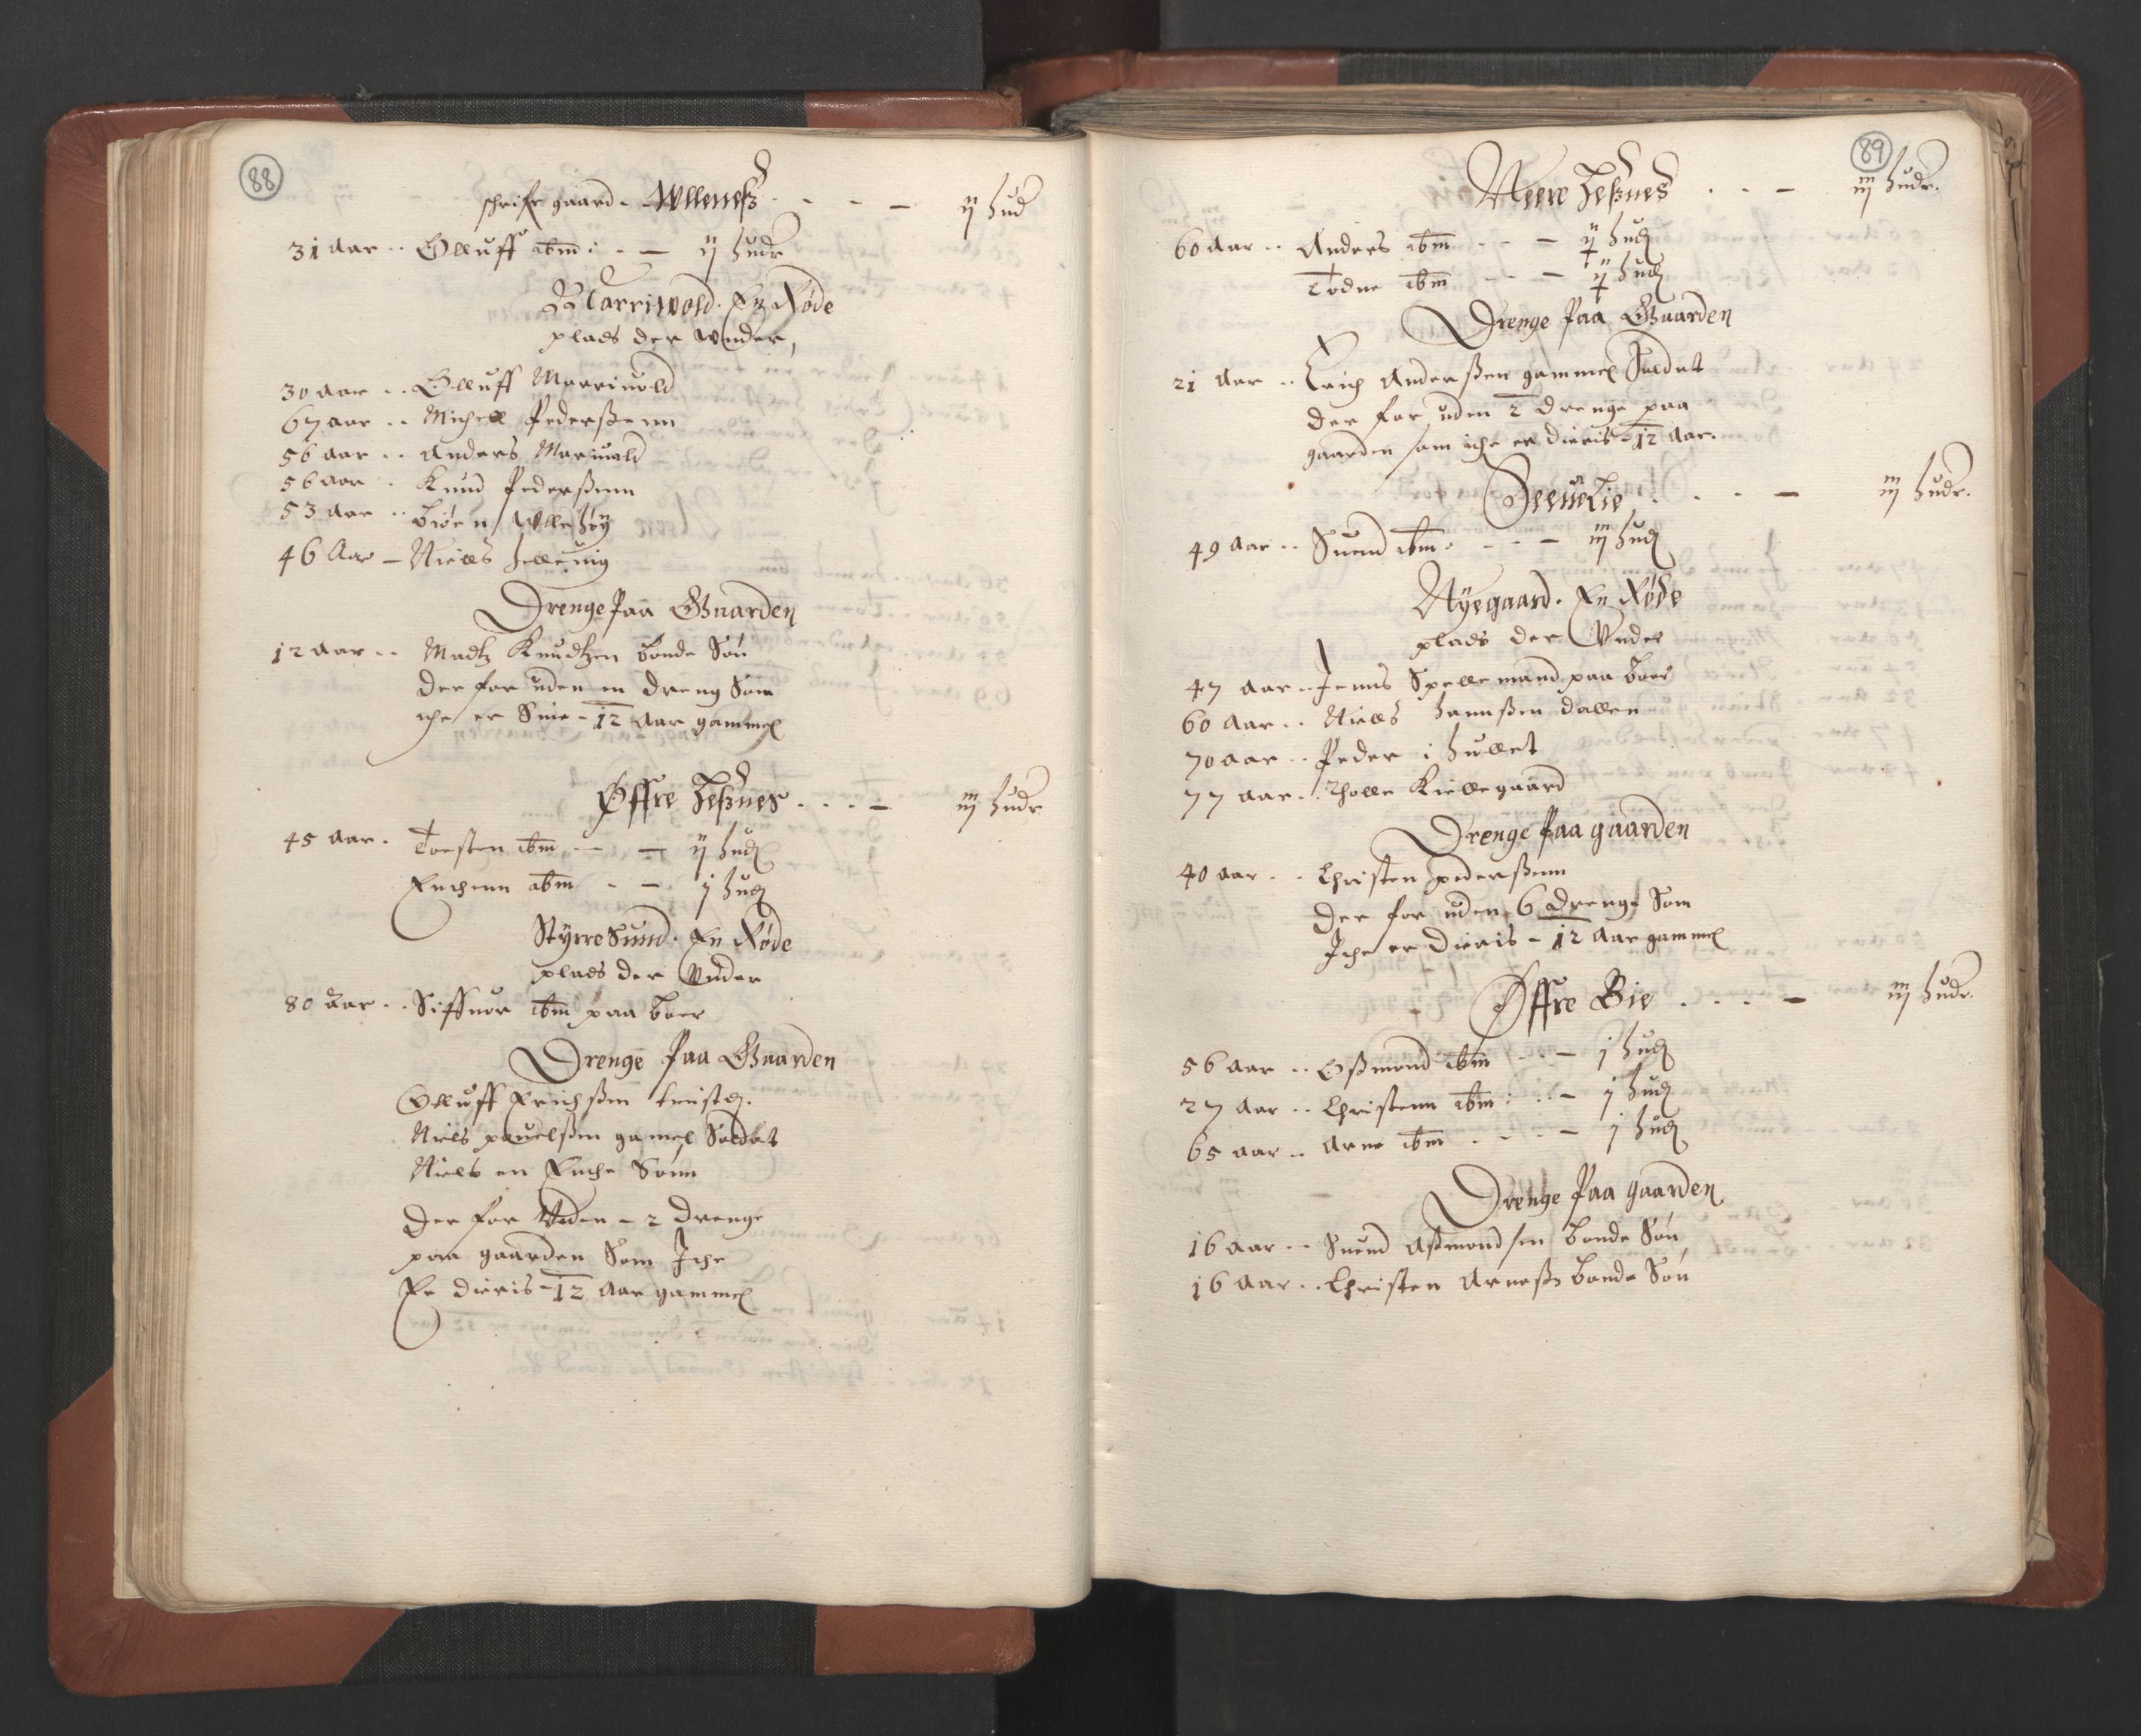 88
schrifr gaard. Wlleneß - - - - ij hud
31 aar .. Olluff ibm: . - ij hudr
Marriwold. En Røde
plads der Wnder,
30 aar .. Olluff Marriuold
67 aar .. Michell Pederßenn
56 aar .. Anders Mariuold
56 aar . Knud Pederßenn
53 aar .. Biøen Wllehøy
46 Aar - Niells Helleuig
Drenge Paa Gaarden
12 aar .. Madtz Knudtzen bonde Søn
der for uden en dreng Som
iche er Siuie - 12 Aar gammel
Øffre Zeßnes . . . - iij hudr
45 aar . Torsten ibm - - ij hud
Enchenn ibm - - j hud
StyrreSund. En Røde
plads der Vnder
80 aar .. Siffuor ibm paa boer
Drenge Paa Gaarden
Olluff Erichßen tieniste.
Niels pouelßen gamel Soldat
Niels en Enche Sønn
der for Vden - 2 drenge
paa gaarden Som Iche
Er dieris - 12 Aar gammel
89
Neere Zeßnes . - - iij hudr.
60 Aar .. Anders ibm - - - ij hud
Todne ibm - - - ij hud
Drenge Paa Gaarden
21 Aar .. Erich Anderßen gammel Soldat
der for uden 2 drenge paa
gaarden som iche er dieris - 12 Aar.
Seeuelie . . . - iij hudr.
49 Aar .. Suend ibm. - - - iij hud
Nyegaard. En Røde
plads der Vnder
47 aar .. Jenns Spellemand paa boer
60 Aar .. Niells Hannßen dallen
70 aar .. Peder i Hullet
77 aar .. Tholle Kiellegaard
Drenge Paa gaarden
40 aar . . Christen pederßenn
der for uden 6 drenge Som
Iche er dieris - 12 Aar gammel
Øffre Bie . . . - iij hudr.
56 aar .. Oßmond ibm - - - j hud
27 Aar .. Christenn ibm: .. - j hud
65 aar .. Arne ibm . - . - j hud
Drenge Paa gaarden
16 aar .. Suend Aßmondsen bonde Søn
16 aar .. Christen Arneß: bonde Søn